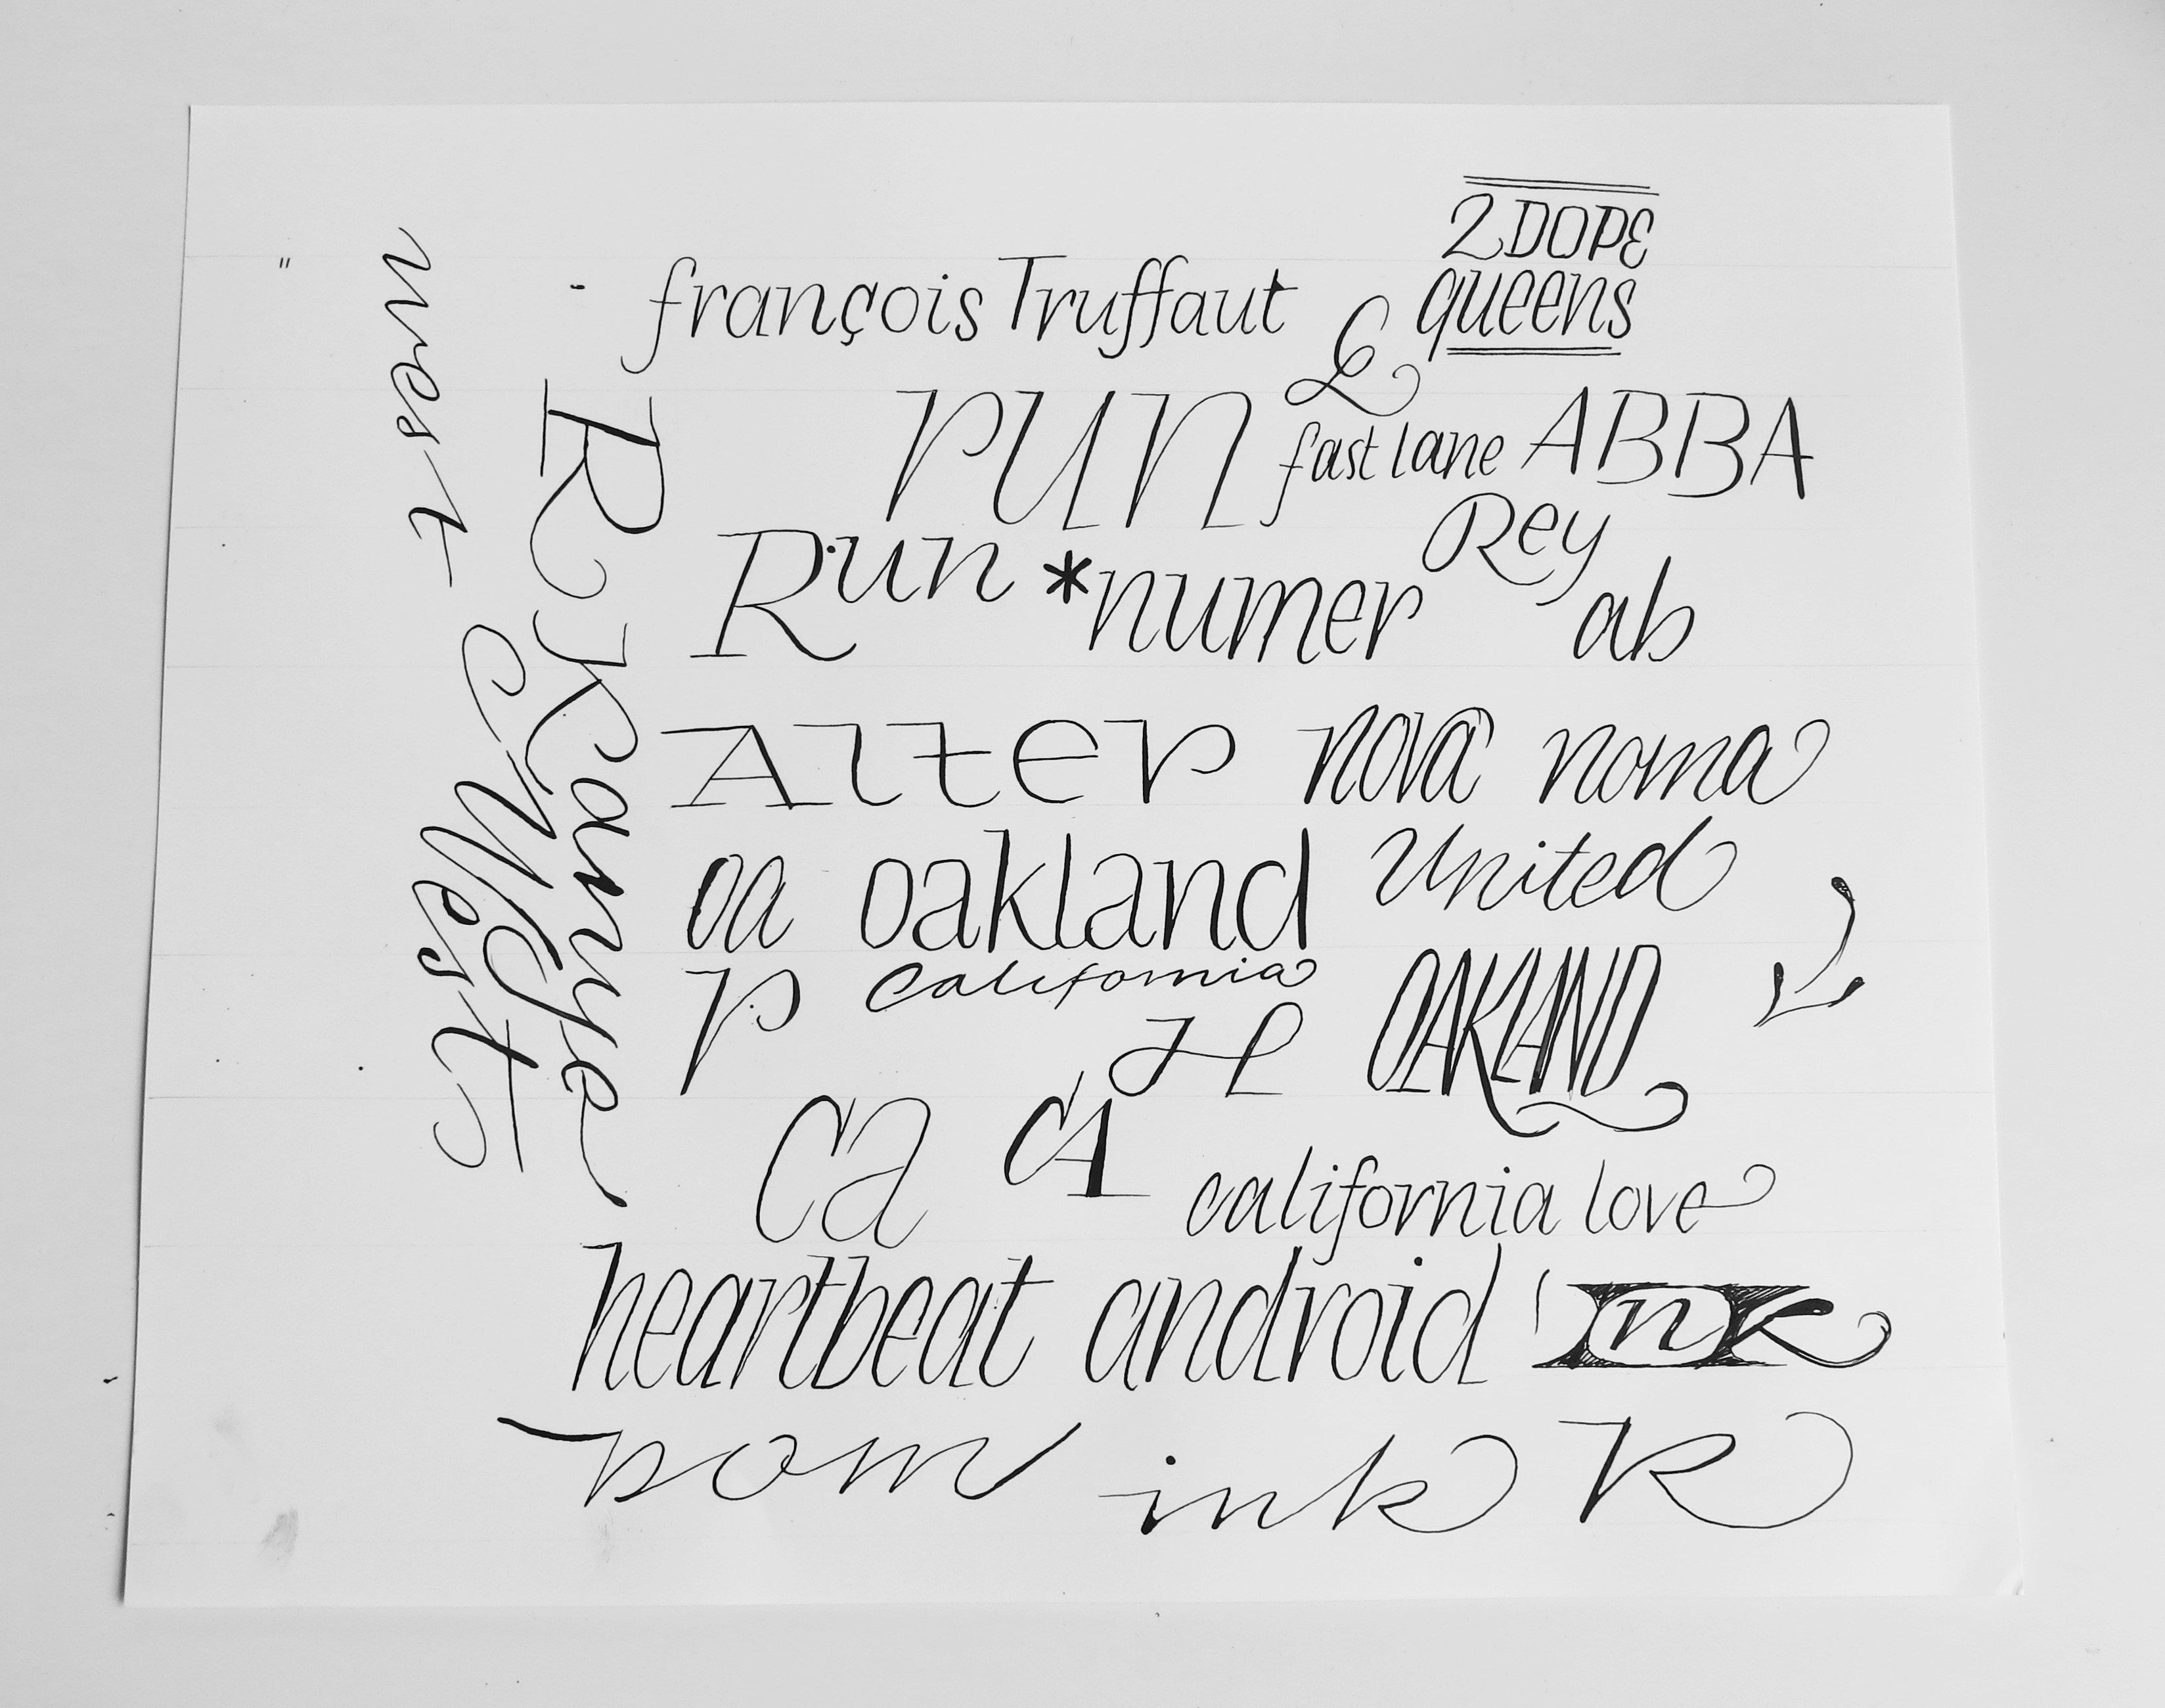 2 DOPE
queens
françois Truffaut
run
fast lane
ABBA
Rey
Run
*numer
ab
Alter
nova
noma
oa
oakland
United
r
california
H
OAKLAND
ca
CA
california love
heartbeat
android
INK
nom
ink
R
west
R
Kanye
West